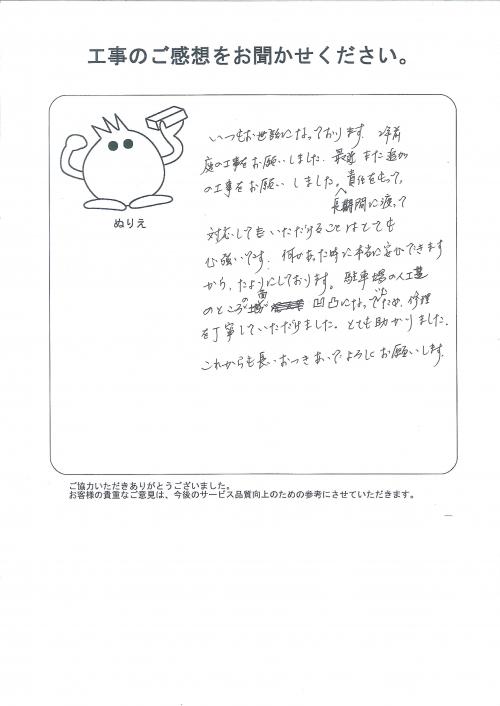 工事のご感想をお聞かせください。
いつもお世話になっております。2年前
庭の工事をお願いしました。最近また追加
の工事をお願いしました。責任をもって、
長期間に渡って
対応して頂いただけることはとても
心強いです。何かあった時に本当に安心できます
から、たよりにしております。駐車場の人工芝
のところの面が凹凸になってたため、修理
を丁寧していただけました。とても助かりました。
これからも長いおつきあいでよろしくお願いします。
ぬりえ
ご協力いただきありがとうございました。
お客様の貴重なご意見は、今後のサービス品質向上のための参考にさせていただきます。